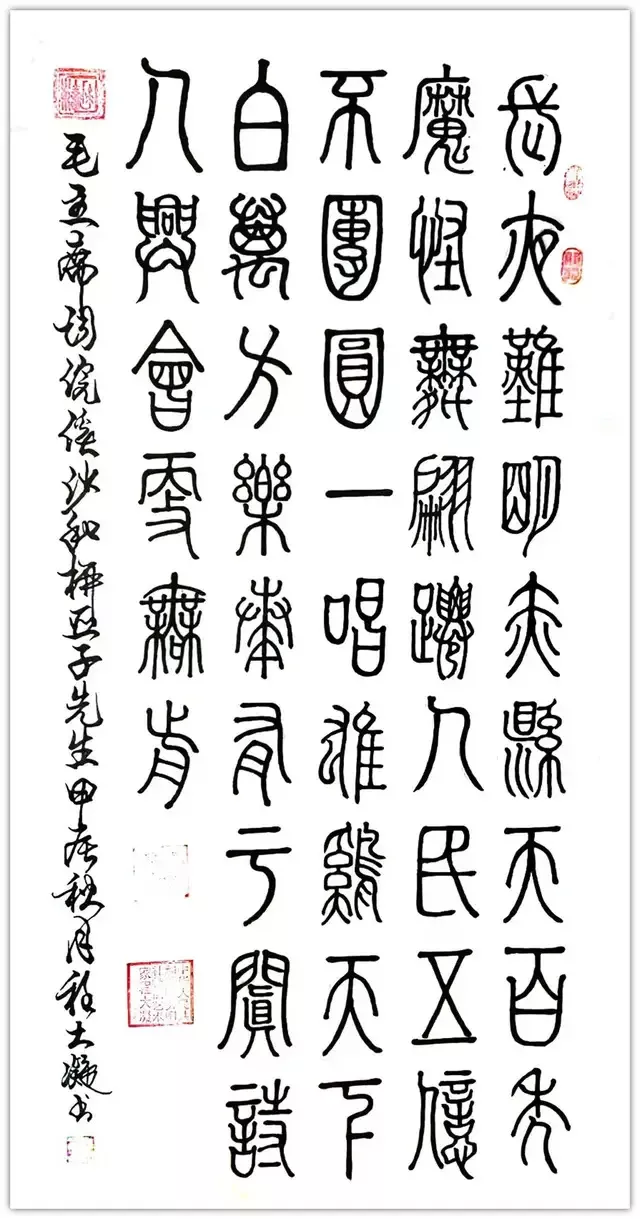 長夜難明赤縣天百年
魔怪舞翩躚人民五億
不團圓一唱雄鷄天下
白萬方樂奏有于闐詩
人興會更無前
毛主席詞浣溪沙和柳亞子先生甲辰秋月程大凝书